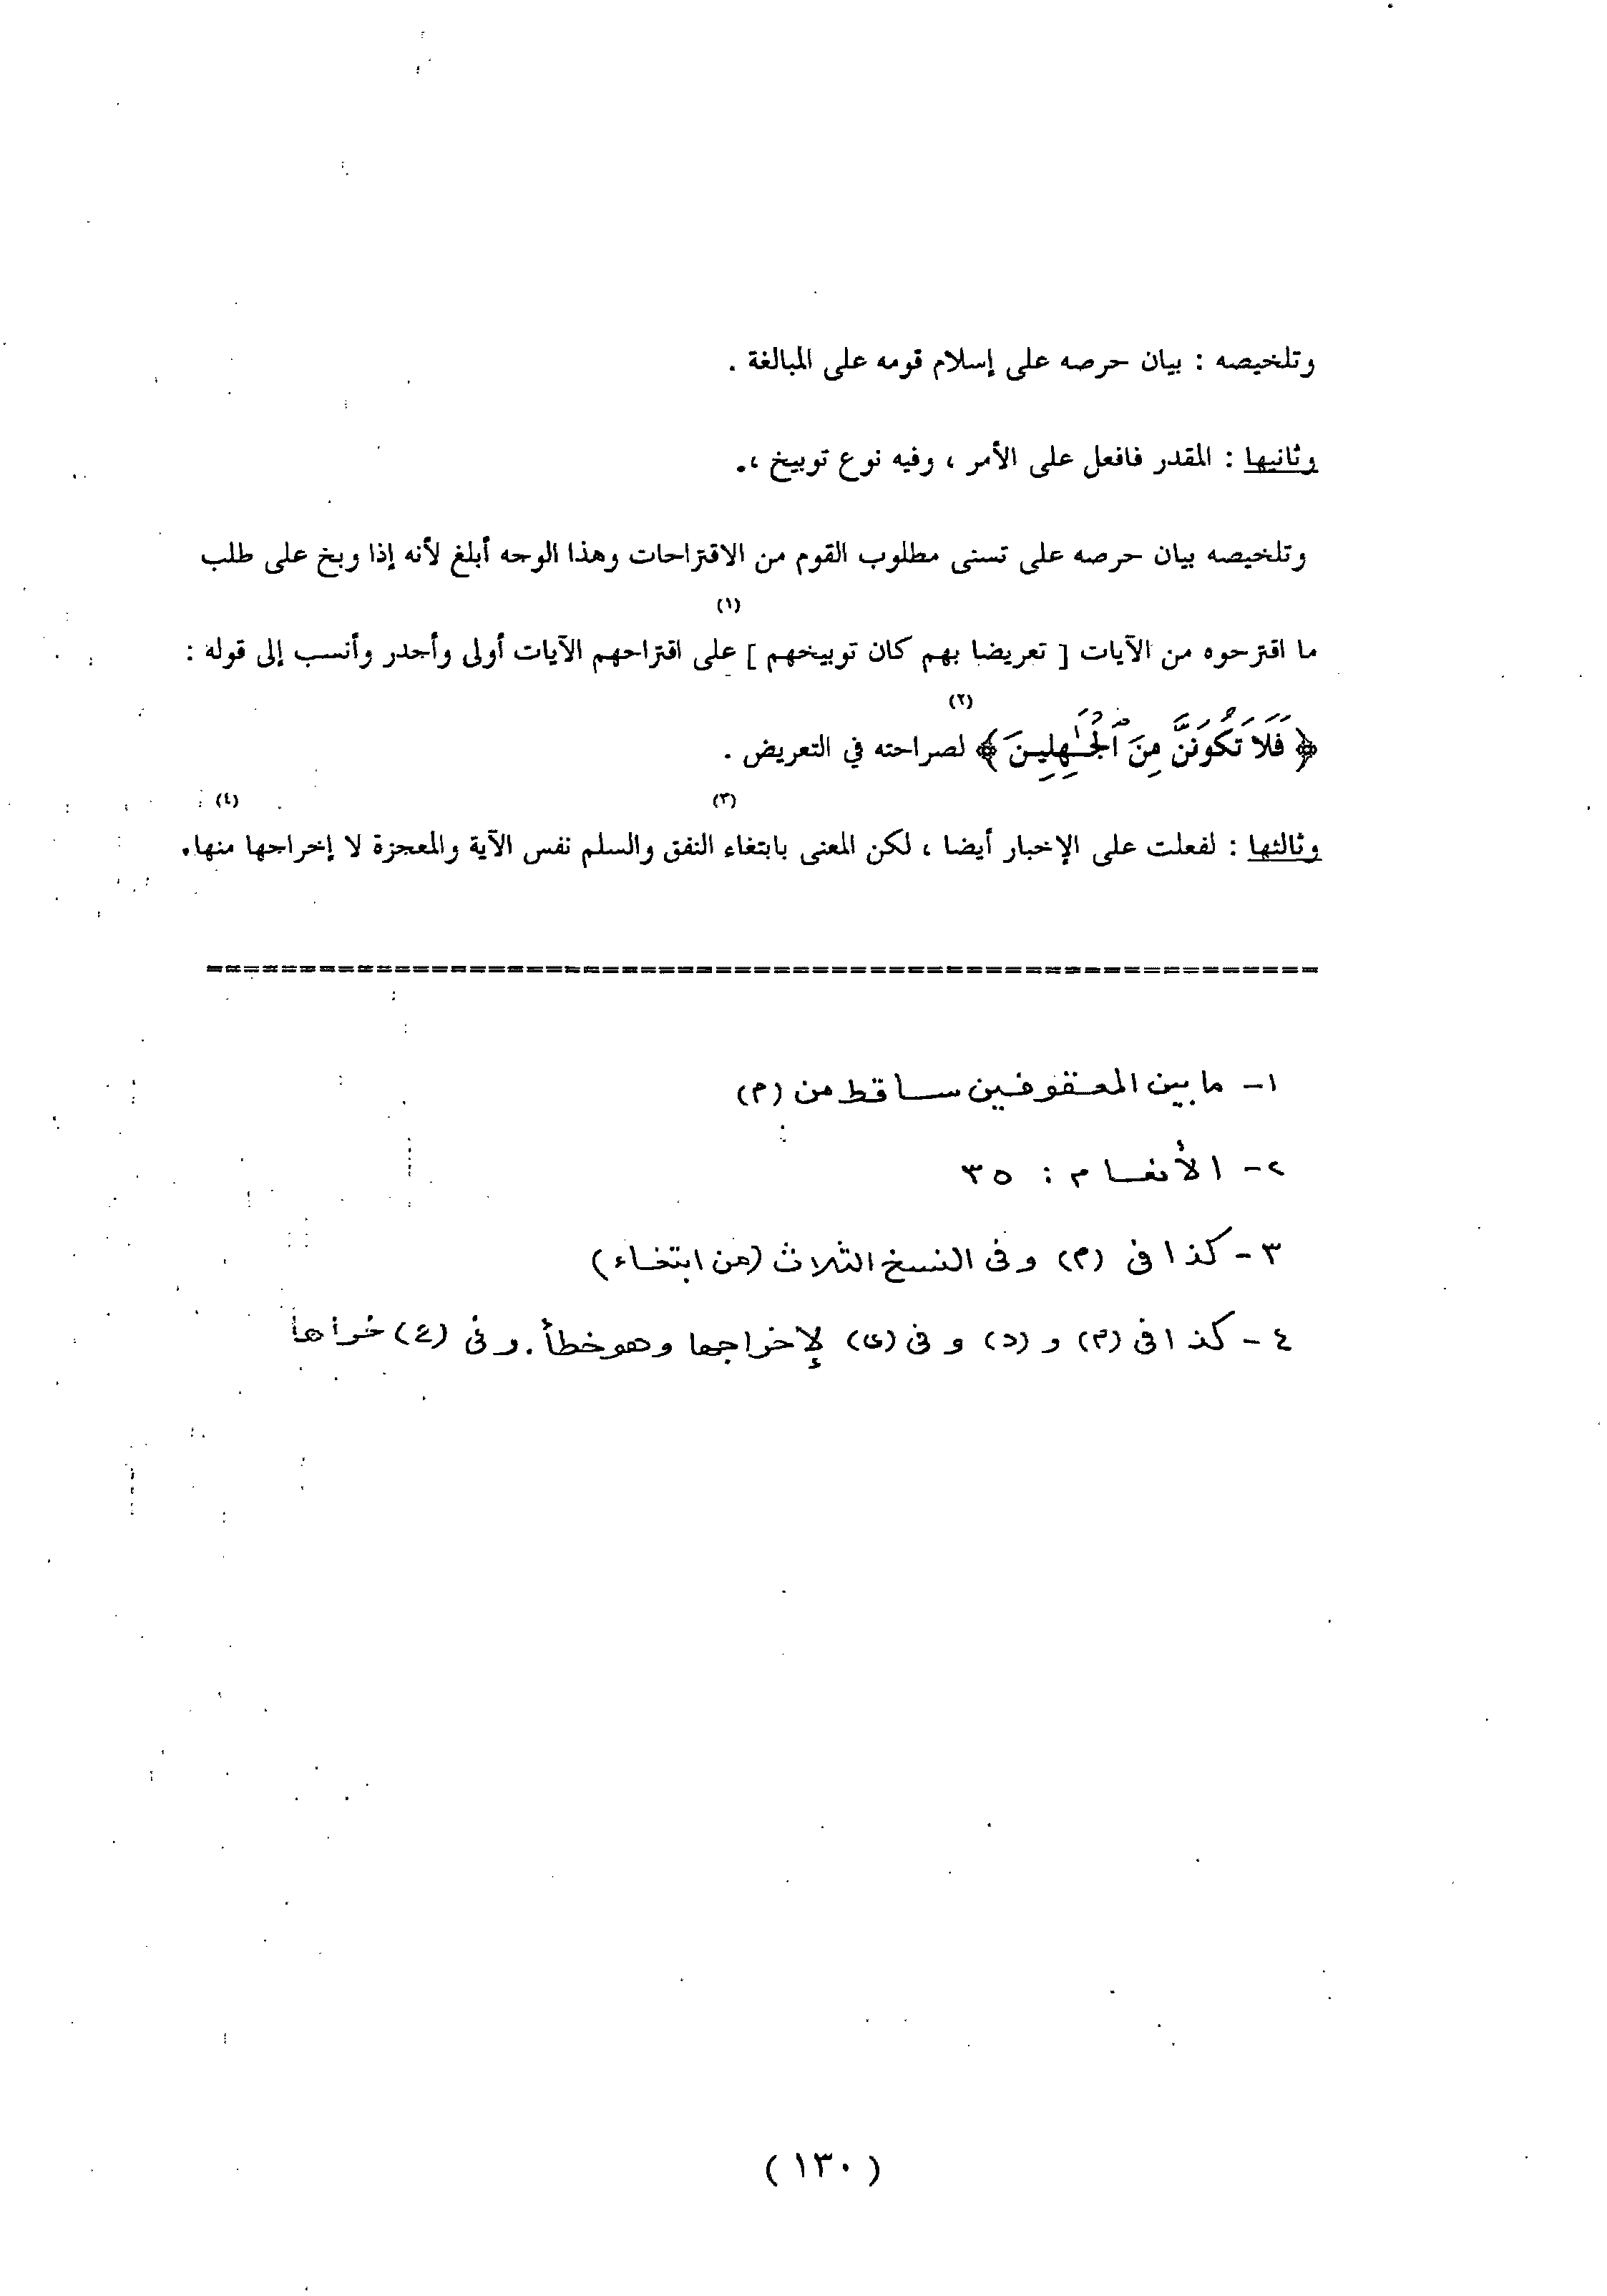 وتلخيصه : بيان حرصه على إسلام قومه على المبالغة .
وثانيها : المقدر فافعل على الأمر ، وفيه نوع توبيخ ،.
وتلخيصه بيان حرصه على تسنى مطلوب القوم من الاقتراحات وهذا الوجه أبلغ لأنه إذا وبخ على طلب
(١)
ما اقترحوه من الآيات [ تعريضا بهم كان توبيخهم ] على اقتراحهم الآيات أولى وأجدر وأنسب إلى قوله :
(٢)
﴿ فَلَا تَكُونَنَّ مِنَ ٱلْجَـٰهِلِينَ ﴾ لصراحته في التعريض .
(٣) (٤)
وثالثها : لفعلت على الإخبار أيضا ، لكن المعنى بابتغاء النفق والسلم نفس الآية والمعجزة لا إخراجها منها.
١- ما بين المعقوفين ساقط من (م)
٢- الأنعام : ٣٥
٣- كذا فى (م) وفى النسخ الثلاث (من ابتغاء)
٤- كذا فى (م) و (د) وفى (ى) لإخراجها وهو خطأ . وفى (ع)
( ١٣٠ )